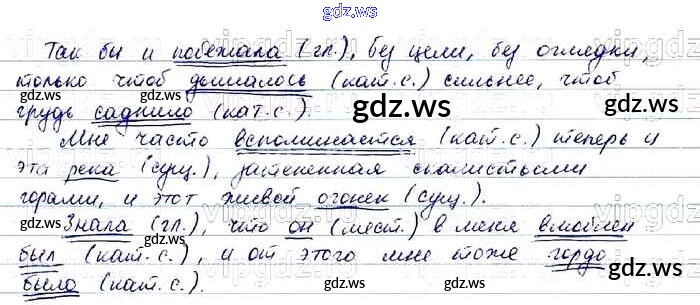 gdz.ws
Так бы и побежала (гл.), без цели, без оглядки,
только чтоб дышалось (кат. с.) сильнее, чтоб
грудь саднило (кат. с.).
gdz.ws
Мне часто вспоминается (кат. с.) теперь и
эта река (сущ.), затененная скалистыми
горами, и этот живой огонек (сущ.).
gdz.ws
Знала (гл.), что он (мест.) в меня влюблен
был (кат. с.), и от этого мне тоже гордо
было (кат. с.).
gdz.ws
gdz.ws